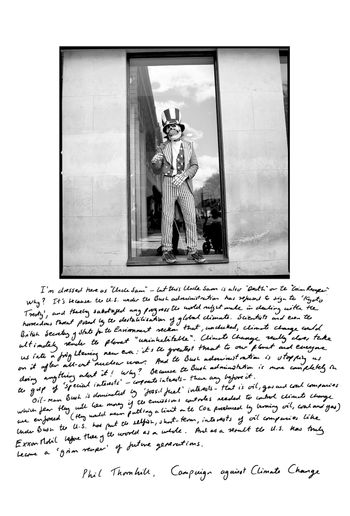 I'm dressed here as "Uncle Sam" – but this Uncle Sam is also 'Death' or the "Grim Reaper"
Why? It's because the U.S. under the Bush administration has refused to sign the 'Kyoto
Treaty', and thereby sabotaged any progress the world might make in dealing with the
horrendous threat posed by the destabilisation of global climate. Scientists and even the
British Secretary of State for the Environment reckon that, unchecked, climate change could
ultimately render the planet "uninhabitable". Climate Change really does take
us into a frightening new era: it's the greatest threat to our planet and everyone
on it after all-out nuclear war. And the Bush administration is stopping us
doing anything about it! Why? Because the Bush administration is more completely in
the grip of 'special interests' – corporate interests – than any before it.
Oil-man Bush is dominated by 'fossil fuel' interests – that is oil, gas and coal companies
which fear they will lose money if the emissions controls needed to combat climate change
are enforced (they would mean putting a limit on the CO2 produced by burning oil, coal and gas)
Under Bush the U.S. has put the selfish, short-term, interests of oil companies like
Exxon Mobil before those of the world as a whole. And as a result the U.S. has truly
become a 'grim reaper' of future generations.
Phil Thornhill, Campaign against Climate Change